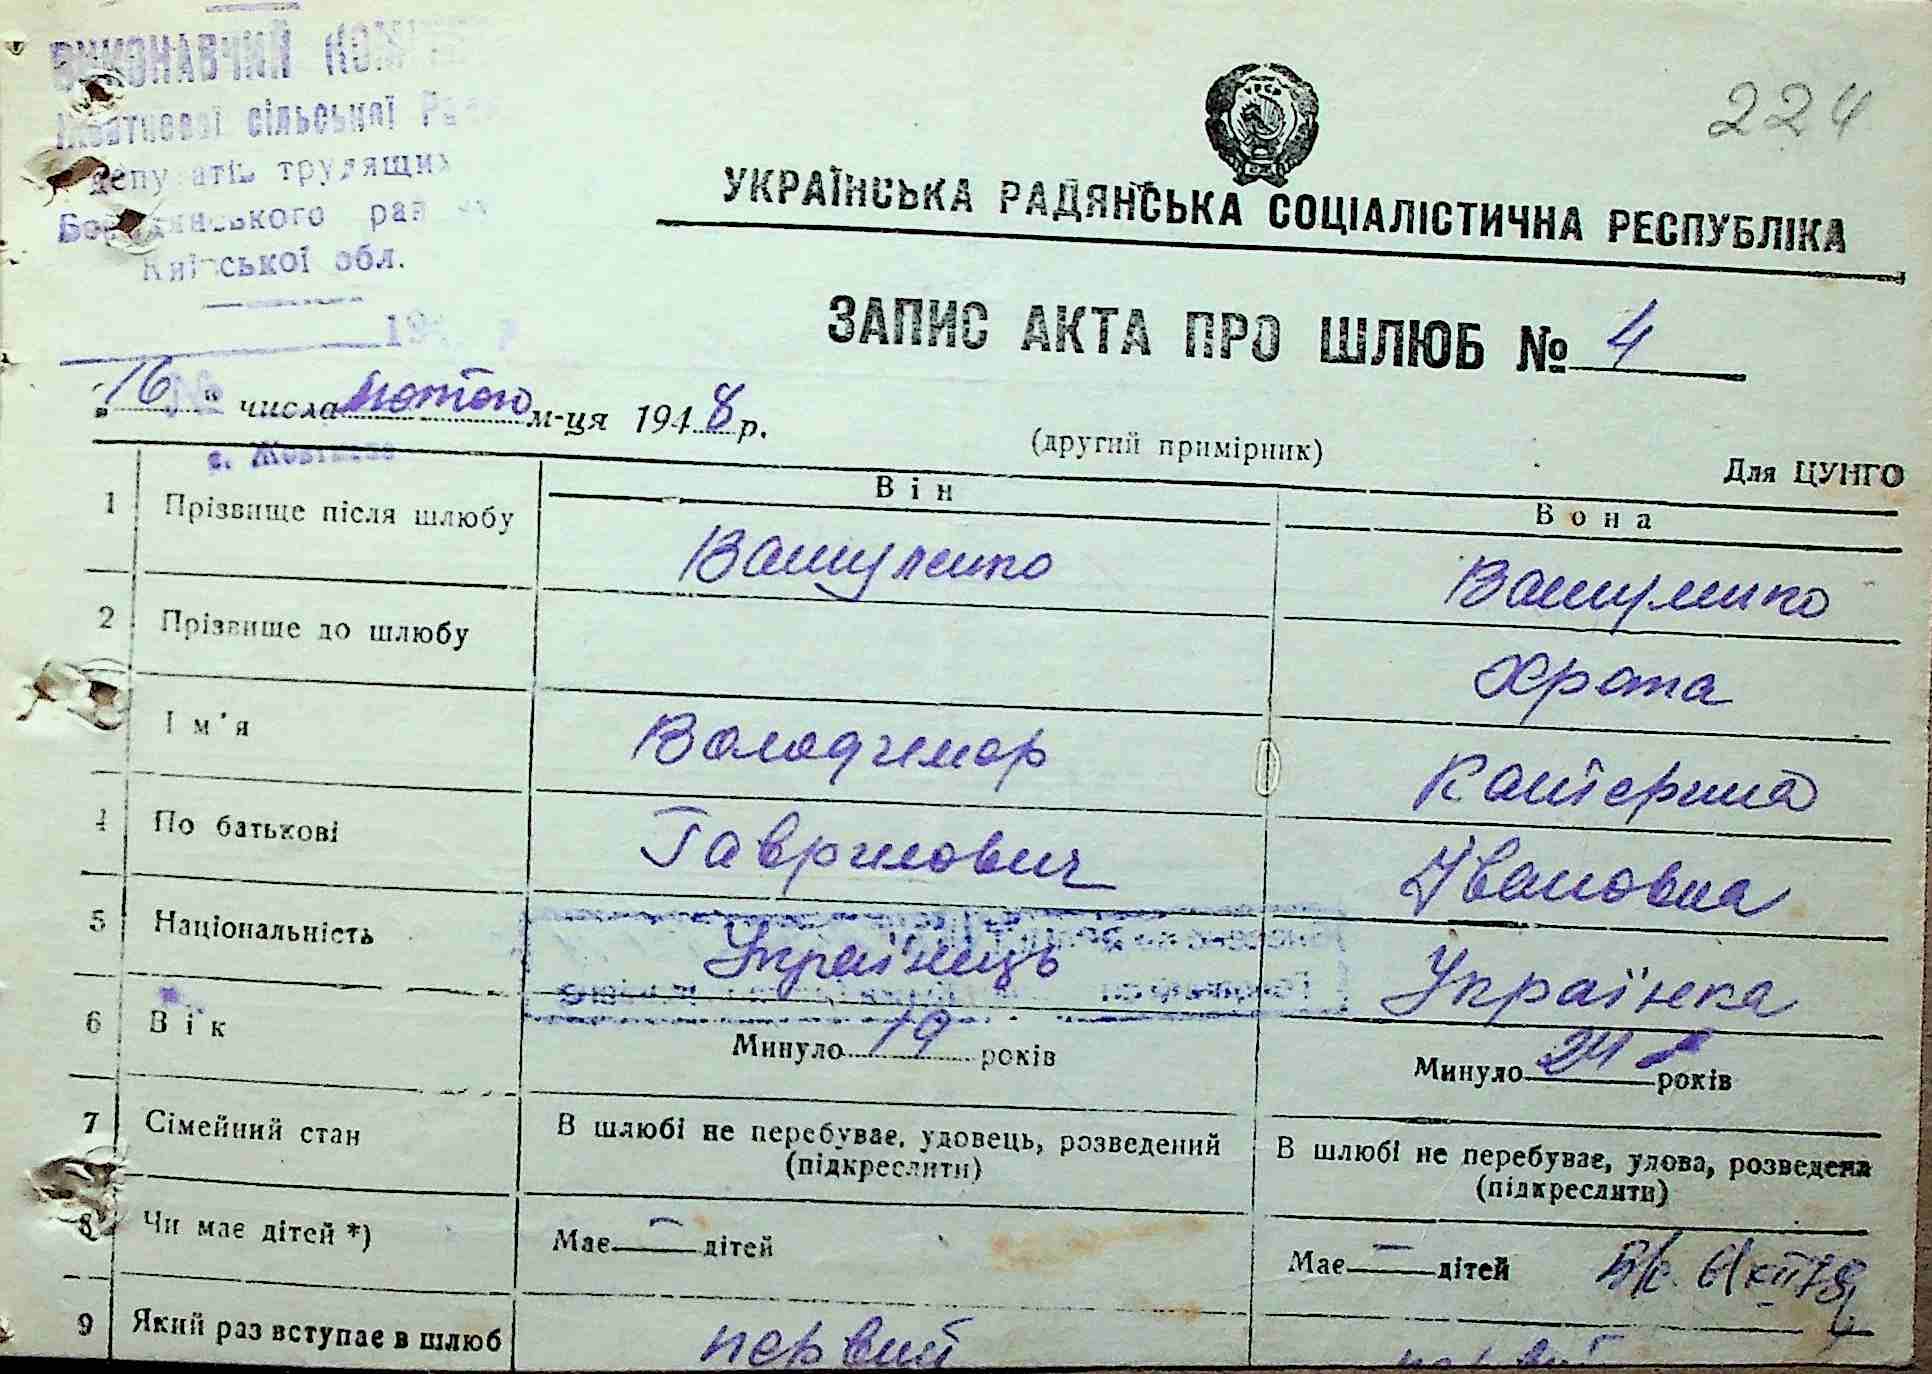 ВИКОНАВЧИЙ
сільської
депутатів трудящих
Бородянського
Київської обл.
224
УРСР
УКРАЇНСЬКА РАДЯНСЬКА СОЦІАЛІСТИЧНА РЕСПУБЛІКА
ЗАПИС АКТА ПРО ШЛЮБ № 4
„16“ числа лютого м-ця 1948 р.
(другий примірник)
Для ЦУНГО
Він
Вона
1 Прізвище після шлюбу Вашуленко Вашуленко
2 Прізвище до шлюбу Храпа
Ім'я Володимир Катерина
4 По батькові Гаврилович Івановна
5 Національність Українець Українка
6 Вік Минуло 19 років Минуло 24 років
7 Сімейний стан В шлюбі не перебуває, удовець, розведений В шлюбі не перебуває, удова, розведена
(підкреслити) (підкреслити)
8 Чи має дітей *) Має — дітей Має — дітей
9 Який раз вступає в шлюб первий первий